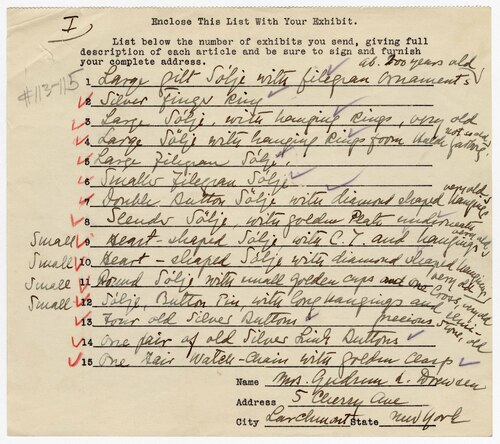 I
Enclose This List With Your Exhibit.
List below the number of exhibits you send, giving full
description of each article and be sure to sign and furnish
your complete address.
ab. 200 years old
#113-115
1 Large gilt Sölje with filegran ornaments
2 Silver Finger Ring
3 Large Sölje, with hanging rings, very old
4 Large Sölje with hanging rings from
not used
5 Large Filegran Sölje
6 Smaller Filegran Sölje
very old
7 Double Button Sölje with diamond shaped hangings
8 Slender Sölje, with golden Plate underneath
Small 9 Heart-shaped Sölje with C.T. and hangings
Small 10 Heart-shaped Sölje with diamond shaped hangings
very old
Small 11 Round Sölje with small golden cups and one
Small 12 Sölje, Button Pin with long hangings and
precious stone, old
13 Four old Silver Buttons
14 One pair of old Silver Link Buttons
15 One Hair Watch-Chain with golden Clasp
Name Mrs. Gudrun L. Drewsen
Address 5 Cherry Ave
City Larchmont State New York